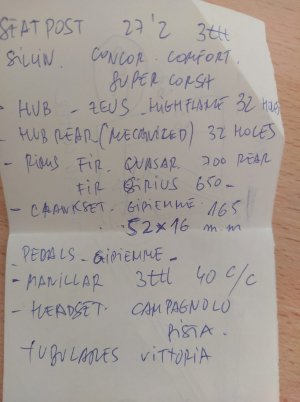 SEATPOST 27'2 3ttt
SILLIN. CONCOR. COMFORT.
SUPER CORSA
- HUB - ZEUS HIGHFLANGE 32 HOLES
- HUB REAR (MECANIZED) 32 HOLES
- RIMS FIR. QUASAR 700 REAR
FIR SIRIUS 650-
- CRANKSET. GIPIEMME 165
52x16 mm
PEDALS - GIPIEMME -
- MANILLAR 3ttt 40 c/c
- HEADSET. CAMPAGNOLO
PISTA.
TUBULARES VITTORIA